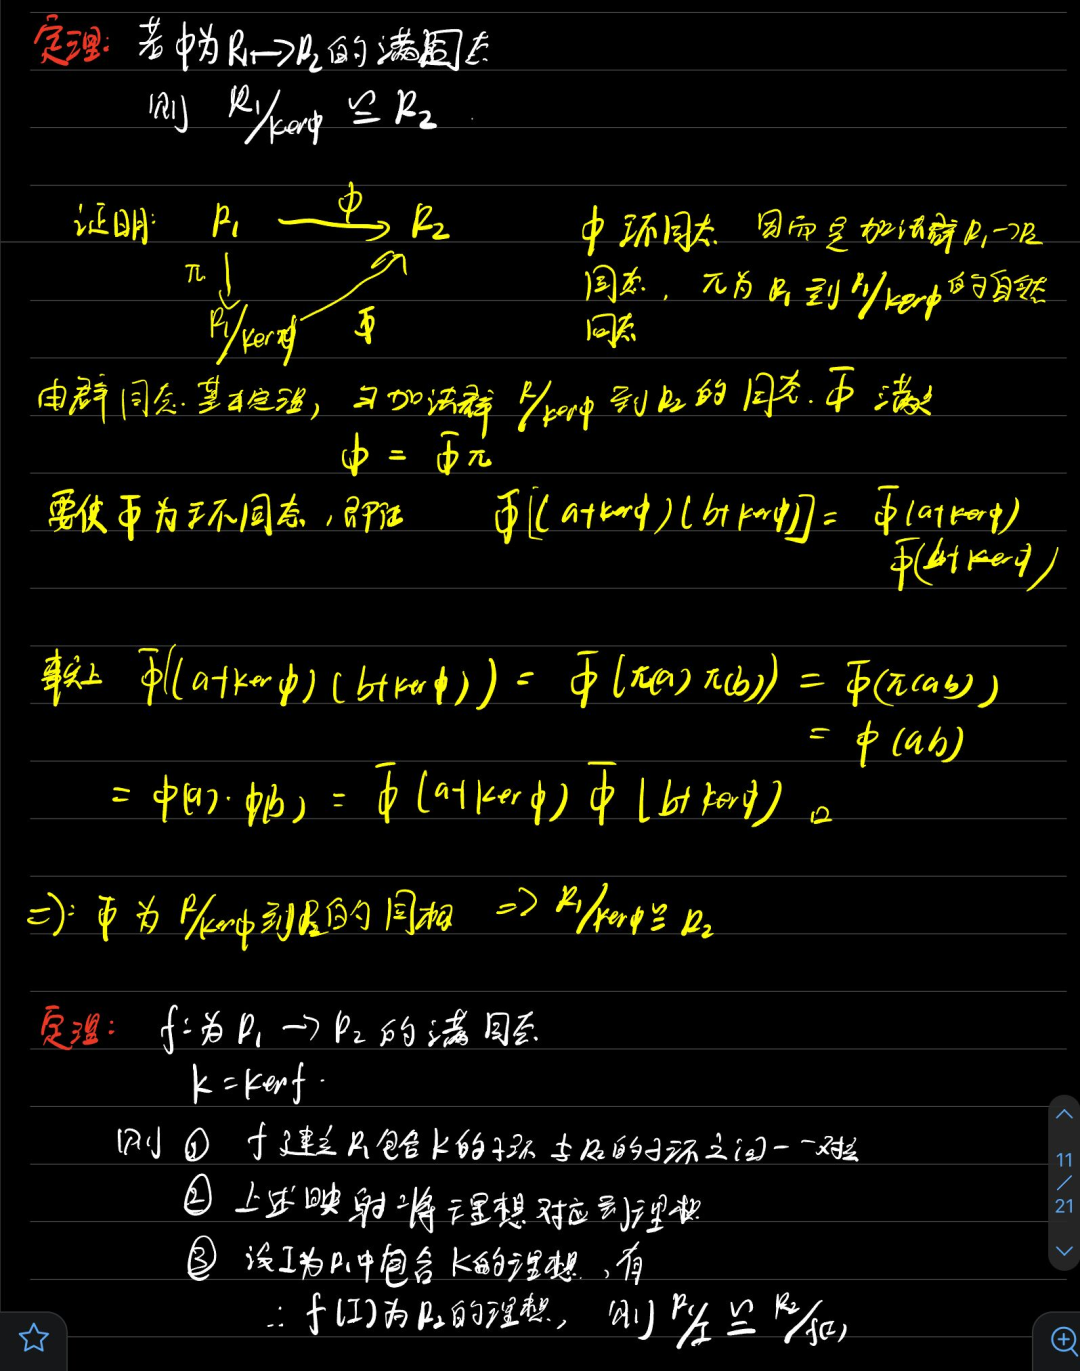 定理: 若φ为R₁→R₂的满同态
则 R₁/kerφ ≌ R₂.
证明: R₁ →φ R₂
π↓
R₁/kerφ Φ̄
φ环同态 因而是加法群R₁→R₂
同态, π为R₁到R₁/kerφ的自然
同态
由群同态基本定理, 习加法群R/kerφ到R₂的同态.Φ̄满足
φ = Φ̄π
要使Φ̄为环同态, 即证 Φ̄[(a+kerφ)(b+kerφ)] = Φ̄(a+kerφ)
Φ̄(b+kerφ)
事实上 Φ̄((a+kerφ)(b+kerφ)) = Φ̄(π(a)π(b)) = Φ̄(π(ab))
= φ(ab)
= φ(a)·φ(b) = Φ̄(a+kerφ)Φ̄(b+kerφ) □
=): Φ̄为R/kerφ到R₂的同构 => R₁/kerφ≌R₂
定理: f:为R₁→R₂的满同态
k=kerf.
则 ① f建立R₁包含K的子环与R₂的子环之间一一对应
② 上述映射将理想对应到理想
③ 设I为R₁中包含K的理想, 有
∴ f(I)为R₂的理想, 则R₁/I ≌ R₂/f(I)
11
/
21